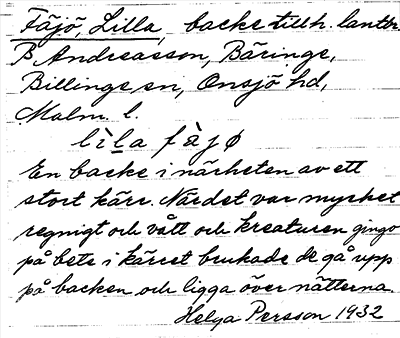 Fäjö, Lilla, backe tillh. lantbr.
P Andreasson, Bäringe,
Billinge sn, Onsjö hd,
Malm. l.
lìla fàjø
En backe i närheten av ett
stort kärr. När det var mycket
regnigt och vått och kreaturen gingo
på bete i kärret brukade de gå upp
på backen och ligga över nätterna.
Helga Persson 1932